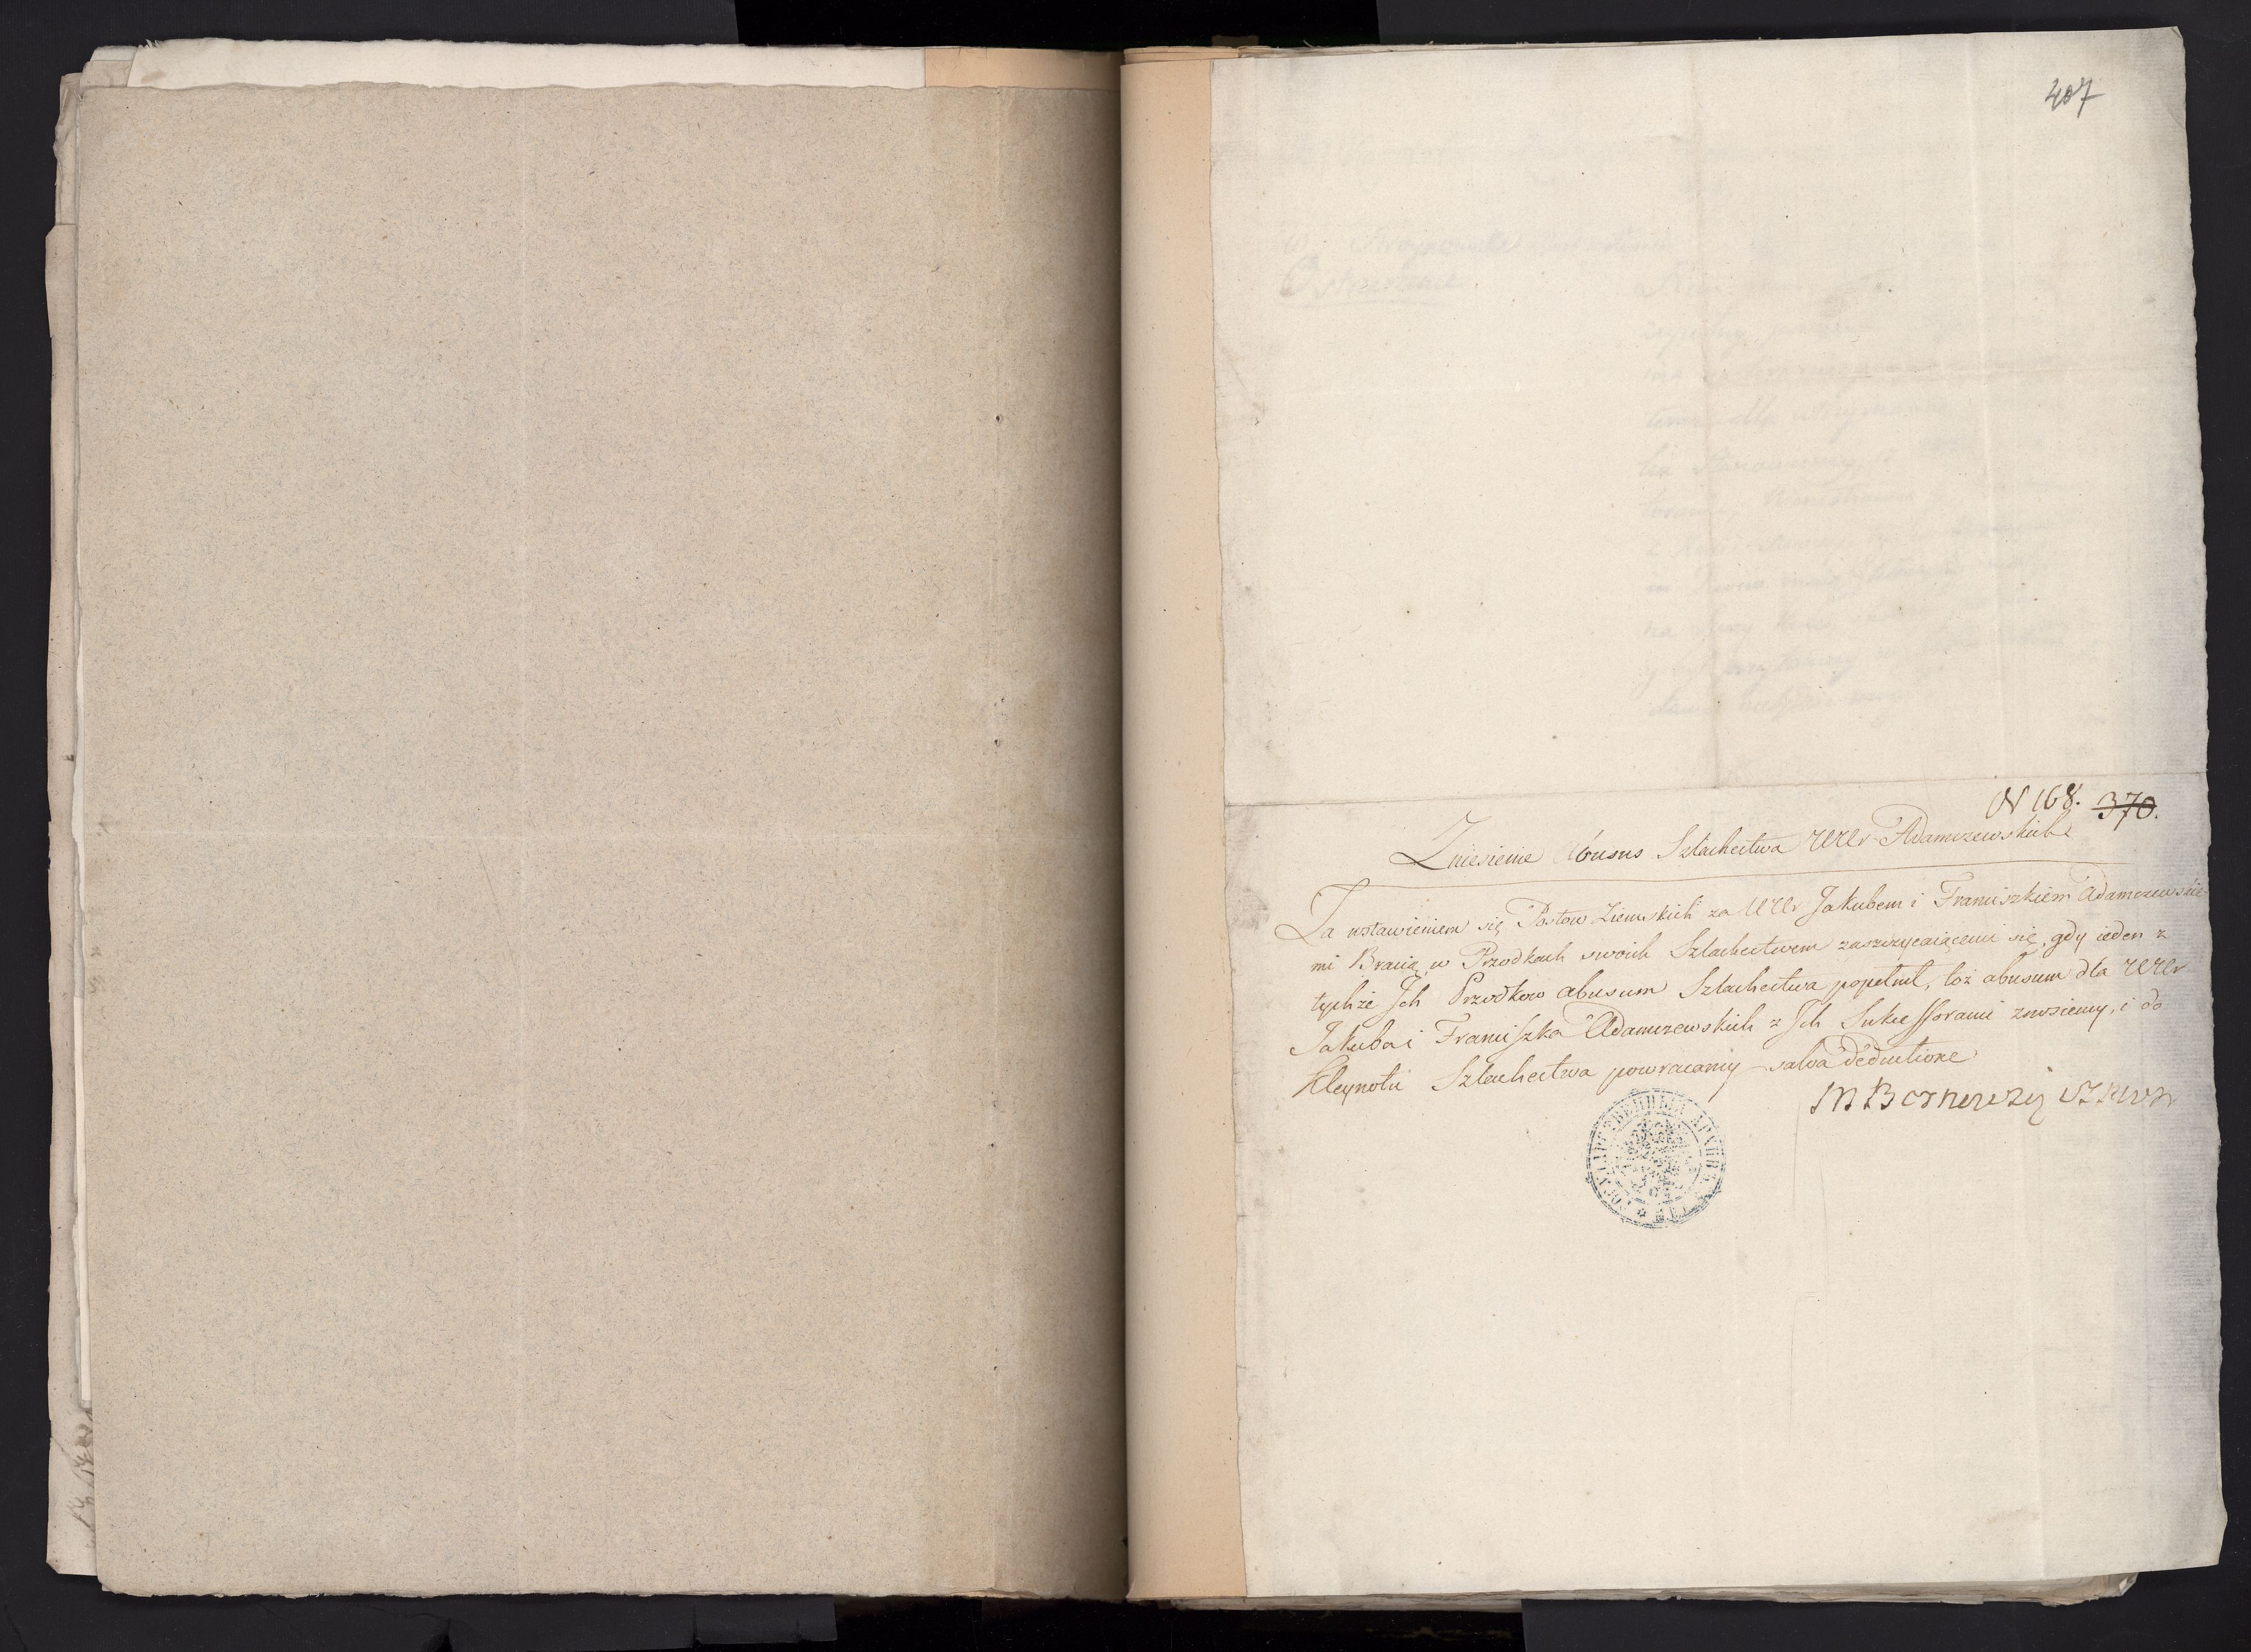 407
N 168. 370.
Zniesienie Abusus Szlachectwa Urr Adamczewskich
Za wstawieniem się Posłow Ziemskich za Urr Jakubem i Franciszkiem Adamczewskie
mi Bracią, w Przodkach swoich Szlachectwem zaszczycaiącemi się, gdy ieden z
tychże Ich Przodkow abusum Szlachectwa popełnił, toż abusum dla Urr
Jakuba i Franciszka Adamczewskich z Ich Sukcessorami znosiemy, i do
Kleynotu Szlachectwa powracamy salva deductione
ГОСУДАРСТВЕННЫЙ АРХИВЪ